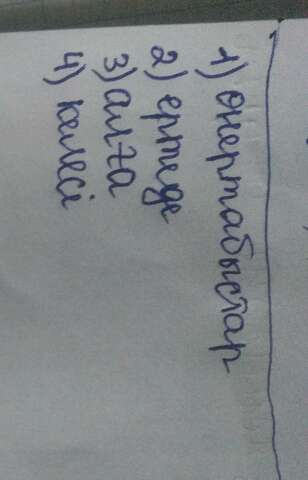 1) өнертабыстар
2) ертеде
3) алға
4) келесі